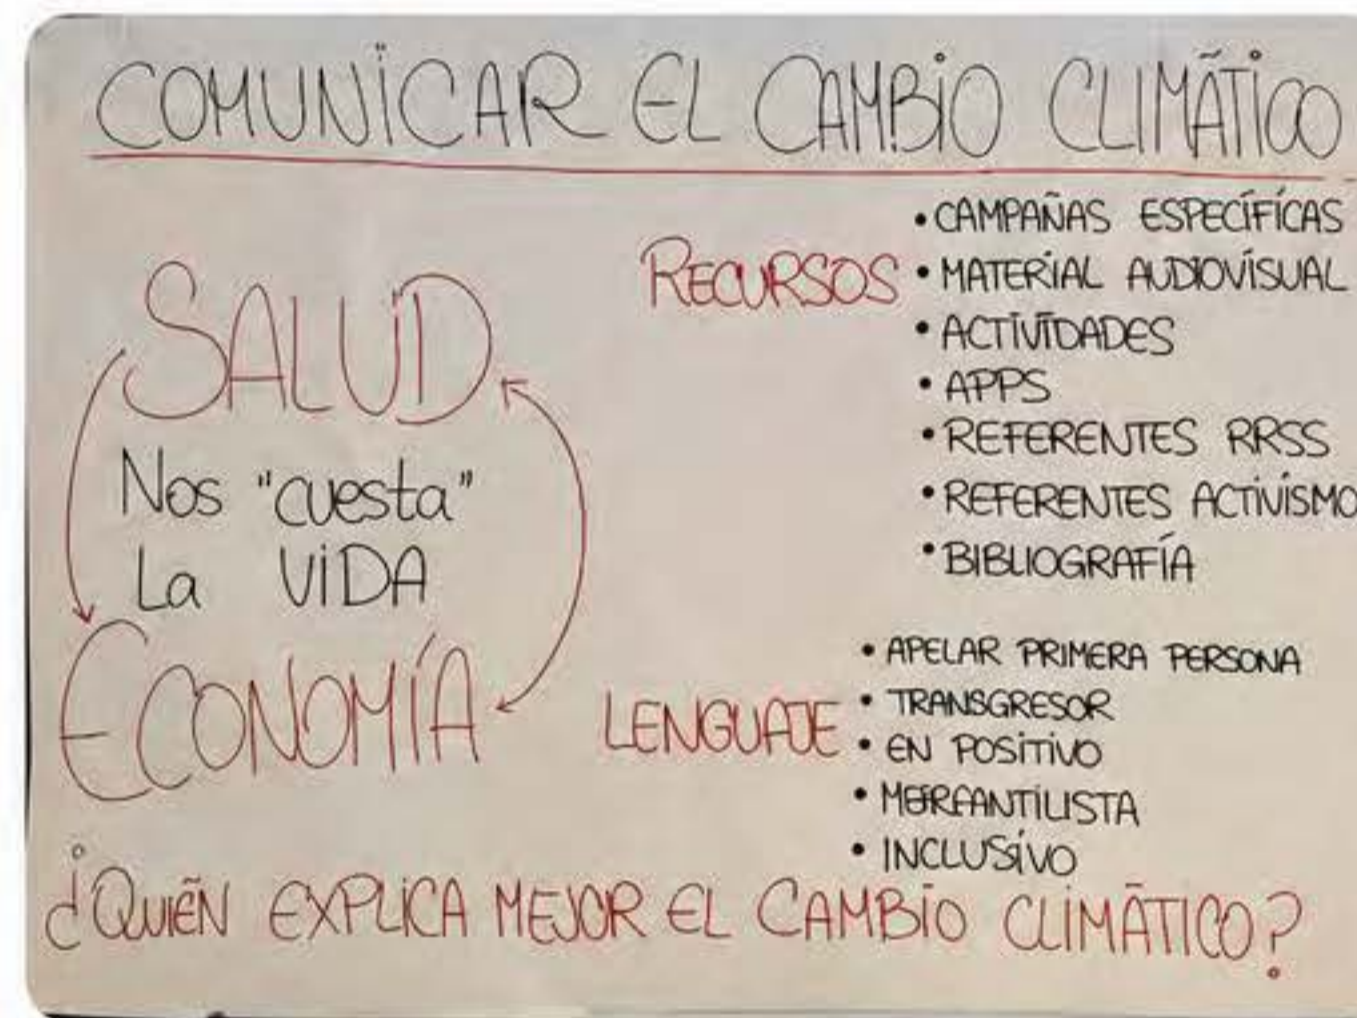 COMUNICAR EL CAMBIO CLIMÁTICO
SALUD
Nos "cuesta"
La VIDA
ECONOMÍA
RECURSOS
• CAMPAÑAS ESPECÍFICAS
• MATERIAL AUDIOVISUAL
• ACTIVIDADES
• APPS
• REFERENTES RRSS
• REFERENTES ACTIVISMO
• BIBLIOGRAFÍA
LENGUAJE
• APELAR PRIMERA PERSONA
• TRANSGRESOR
• EN POSITIVO
• MERCANTILISTA
• INCLUSIVO
¿QUIÉN EXPLICA MEJOR EL CAMBIO CLIMÁTICO?